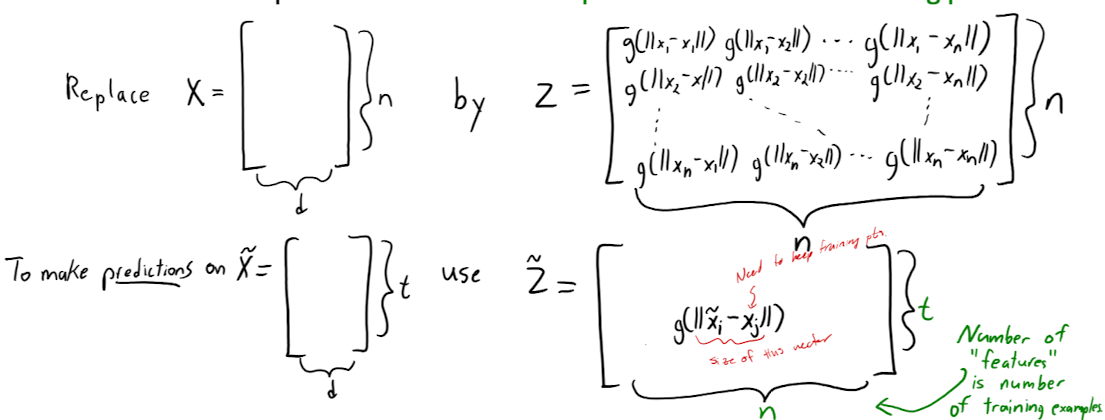 Replace X = [ ] } n by Z = [ g(||x₁-x₁||) g(||x₁-x₂||) ··· g(||x₁-xₙ||)
g(||x₂-x₁||) g(||x₂-x₂||) ···· g(||x₂-xₙ||)
g(||xₙ-x₁||) g(||xₙ-x₂||) ··· g(||xₙ-xₙ||) ] } n
d
n
To make predictions on X̃ = [ ] } t use Z̃ = [ g(||x̃ᵢ-xⱼ||) ] } t
Need to keep training pts.
size of this vector
d
n
Number of
"features"
is number
of training examples